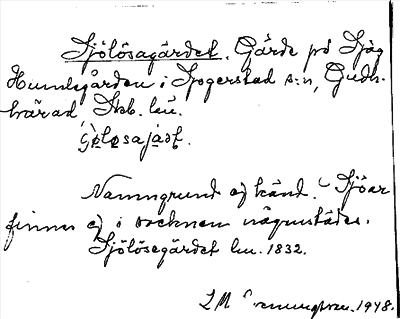 Sjölösagärdet. Gärde på Sjög
Humlegården i Sjogerstad s:n, Gudh.
härad Skb. län.
Namngrund ej känd. Sjöar
finnes ej i socknen någonstädes.
Sjölösegärdet lm. 1832.
L M 1948.